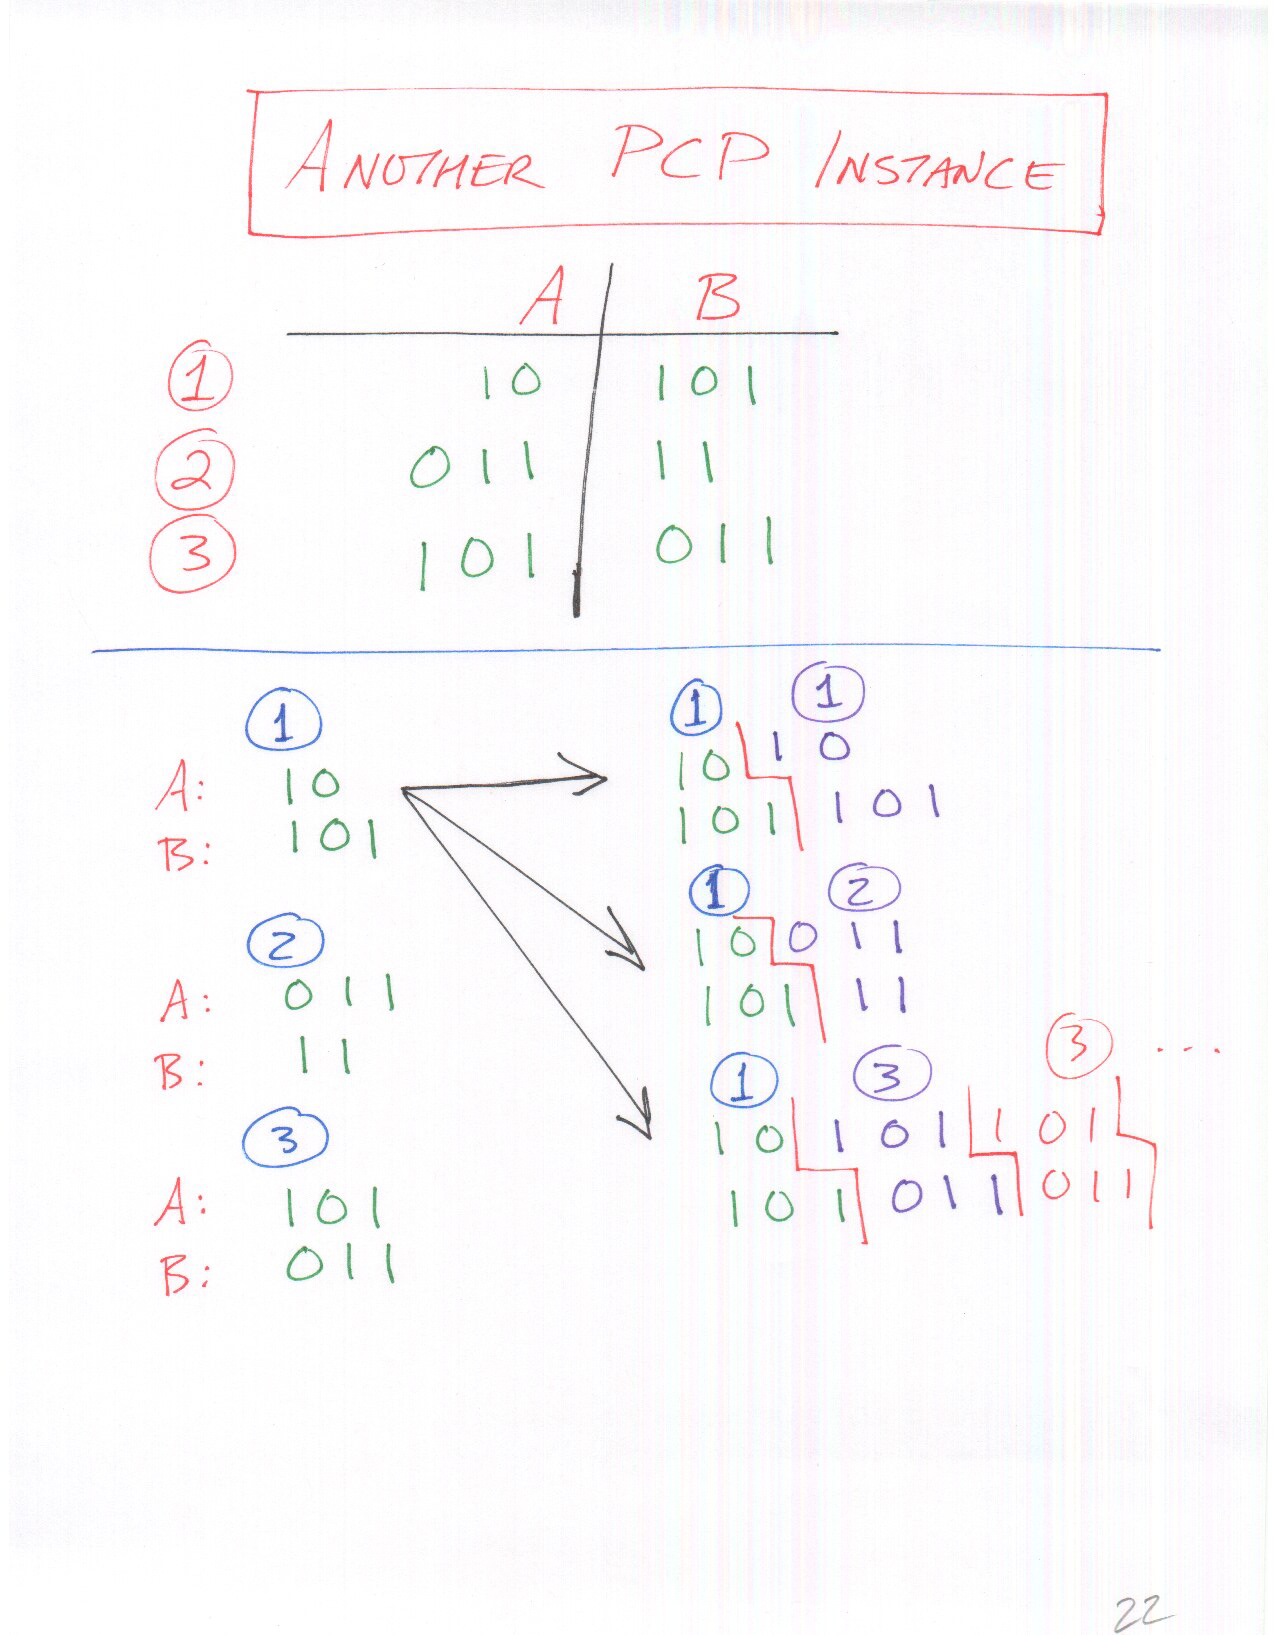 ANOTHER PCP INSTANCE
A B
1 10 101
2 011 11
3 101 011
1
A: 10
B: 101
2
A: 011
B: 11
3
A: 101
B: 011
1 1
10 10
101 101
1 2
10 011
101 11
1 3 3 ...
10 101 101
101 011 011
22